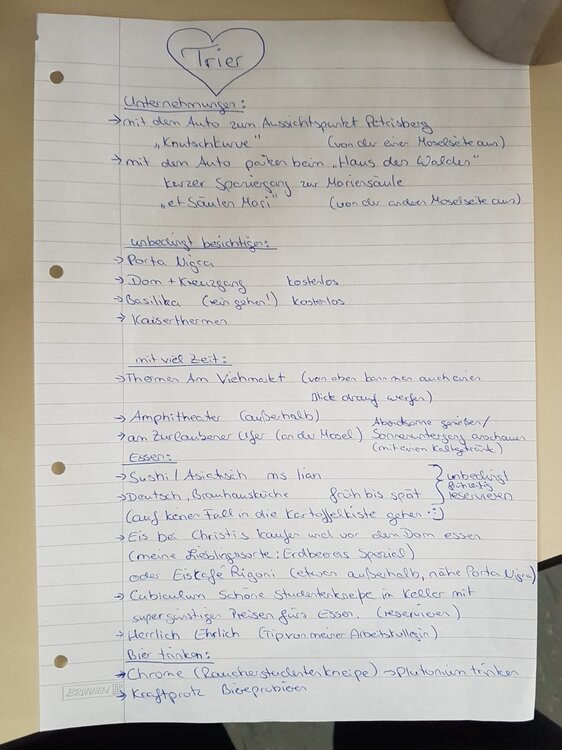 Trier
Unternehmungen:
→ mit dem Auto zum Aussichtspunkt Petrisberg
„Knutschkurve“ (von der einen Moselseite aus)
→ mit dem Auto parken beim „Haus des Waldes“
kurzer Spaziergang zur Mariensäule
„et Säulen Mari“ (von der anderen Moselseite aus)
unbedingt besichtigen:
→ Porta Nigra
→ Dom + Kreuzgang kostenlos
→ Basilika (rein gehen!) kostenlos
→ Kaiserthermen
mit viel Zeit:
→ Thermen Am Viehmarkt (von oben kann man auch einen
Blick drauf werfen)
→ Amphitheater (außerhalb)
→ am Zurlaubener Ufer (an der Mosel) Abendsonne genießen/
Sonnenuntergang anschauen
(mit einem Kaltgetränk)
Essen:
→ Sushi / Asiatisch ms lian
→ Deutsch, Brauhausküche früh bis spät
} unbedingt
frühzeitig
reservieren
(auf keinen Fall in die Kartoffelkiste gehen :-))
→ Eis bei Christis kaufen und vor dem Dom essen
(meine Lieblingssorte: Erdbeereis Spezial)
oder Eiskafé Rigoni (etwas außerhalb, nähe Porta Nigra)
→ Cubiculum Schöne Studentenkneipe im Keller mit
super günstigen Preisen fürs Essen. (reservieren)
→ Herrlich Ehrlich (Tip von meiner Arbeitskollegin)
Bier trinken:
→ Chrome (Raucherstudentenkneipe) → Plutonium trinken
→ Kraftprotz Biere probieren
BRUNNEN